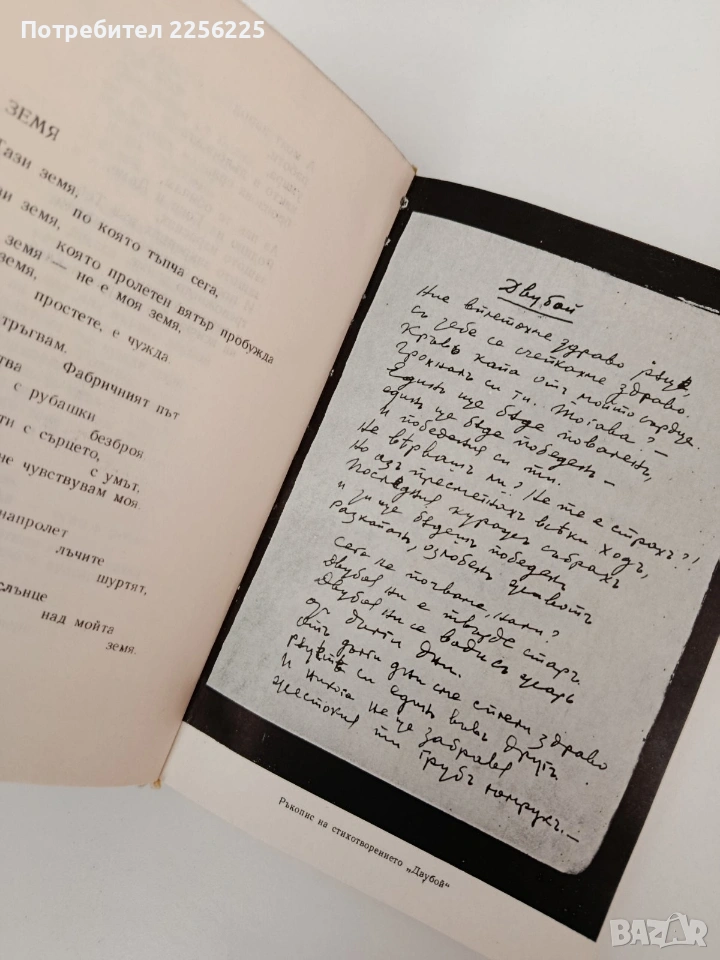 Потребител 2256225
ЗЕМЯ
Тази земя,
по която тъпча сега,
зи земя,
която пролетен вятър пробужда
земя — не е моя земя,
земя,
простете, е чужда
тръгвам.
Фабричният път
ства
с рубашки
безброя
ти с сърцето,
с умът.
не чувствувам моя.
напролет
лъчите
шуртят,
слънце
над мойта
земя.
Двубой
Ние вплетохме здраво ръце,
съ тебе се счепкахме здраво.
Кръвь капа отъ мойто сърдце
Грохналъ си ти. Тогава? —
Единъ ще бѫде поваленъ,
единъ ще бѫде победенъ —
и победения си ти.
Не вѣрвашъ ли? Не те е страхъ?!
Но азъ пресметнахъ всѣки ходъ,
последния куражъ събрахъ
и ти ще бѫдешъ победенъ
озлобенъ животъ
Сега не почваме, нали?
Двубоя ни е твърде старъ.
Двубоя ни се води съ жарь
дни.
отъ дълги дни сме сплели здраво
рѫцетѣ си единъ въвъ другъ
и никога не ще забравя
жестокия ти грубъ юмрукъ. —
Ръкопис на стихотворението „Двубой“
BAZAR